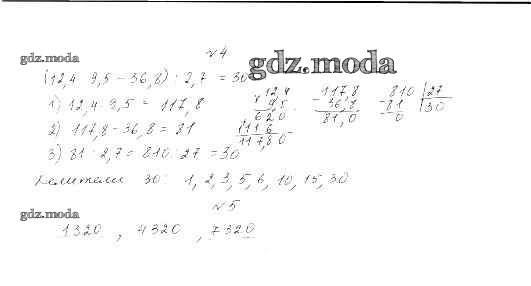 №4
gdz.moda
gdz.moda
(12,4 · 9,5 − 36,8) : 2,7 = 30
1) 12,4 · 9,5 = 117,8
2) 117,8 − 36,8 = 81
3) 81 : 2,7 = 810 : 27 = 30
12,4
× 9,5
620
1116
117,80
117,8
− 36,8
81,0
810 | 27
− 81 | 30
0
Делители 30: 1, 2, 3, 5, 6, 10, 15, 30
№5
gdz.moda
1320, 4320, 7320